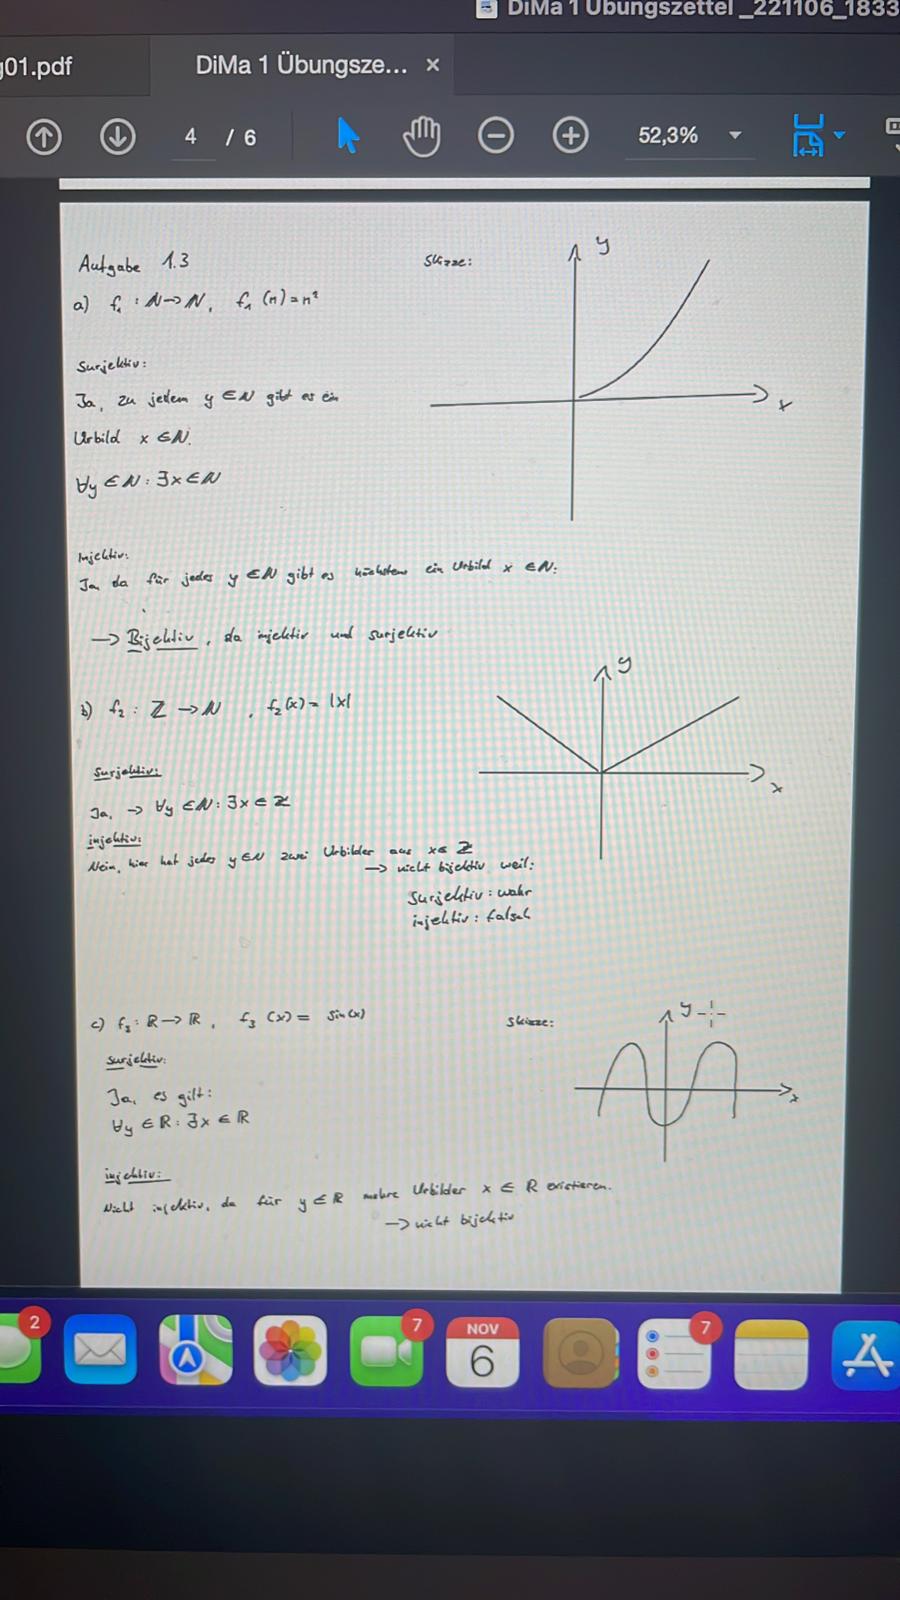 DiMa 1 Übungszettel _221106_1833
g01.pdf
DiMa 1 Übungsze... ×
4 / 6 52,3%
Aufgabe 1.3
Skizze:
y
x
a) f₁ : ℕ→ℕ, f₁ (n) = n²
Surjektiv:
Ja, zu jedem y ∈ ℕ gibt es ein
Urbild x ∈ ℕ.
∀y ∈ ℕ : ∃x ∈ ℕ
Injektiv:
Ja da für jedes y ∈ ℕ gibt es höchstens ein Urbild x ∈ ℕ.
→ Bijektiv, da injektiv und surjektiv
y
x
b) f₂ : ℤ → ℕ , f₂(x) = |x|
Surjektiv:
Ja, → ∀y ∈ ℕ : ∃x ∈ ℤ
injektiv:
Nein, hier hat jedes y ∈ ℕ zwei Urbilder aus x ∈ ℤ
→ nicht bijektiv weil:
Surjektiv : wahr
injektiv : falsch
c) f₃ : ℝ → ℝ, f₃ (x) = sin(x)
Skizze:
y
x
surjektiv:
Ja, es gilt:
∀y ∈ ℝ : ∃x ∈ ℝ
injektiv:
Nicht injektiv, da für y ∈ ℝ mehre Urbilder x ∈ ℝ existieren.
→ nicht bijektiv
2
7
NOV
6
7